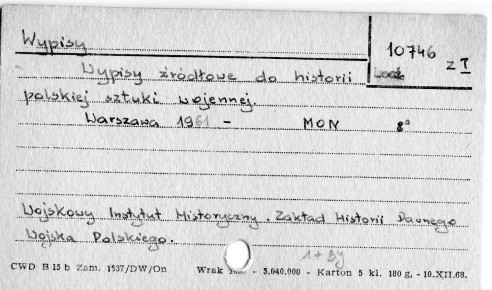 Wypisy
10746
z I
Wypisy źródłowe do historii
polskiej sztuki wojennej.
Warszawa 1961 - MON 8°
Wojskowy Instytut Historyczny. Zakład Historii Dawnego
Wojska Polskiego.
1 + By
CWD B 15 b Zam. 1537/DW/On Wrak - 5.040.000 - Karton 5 kl. 180 g. - 10.XII.68.